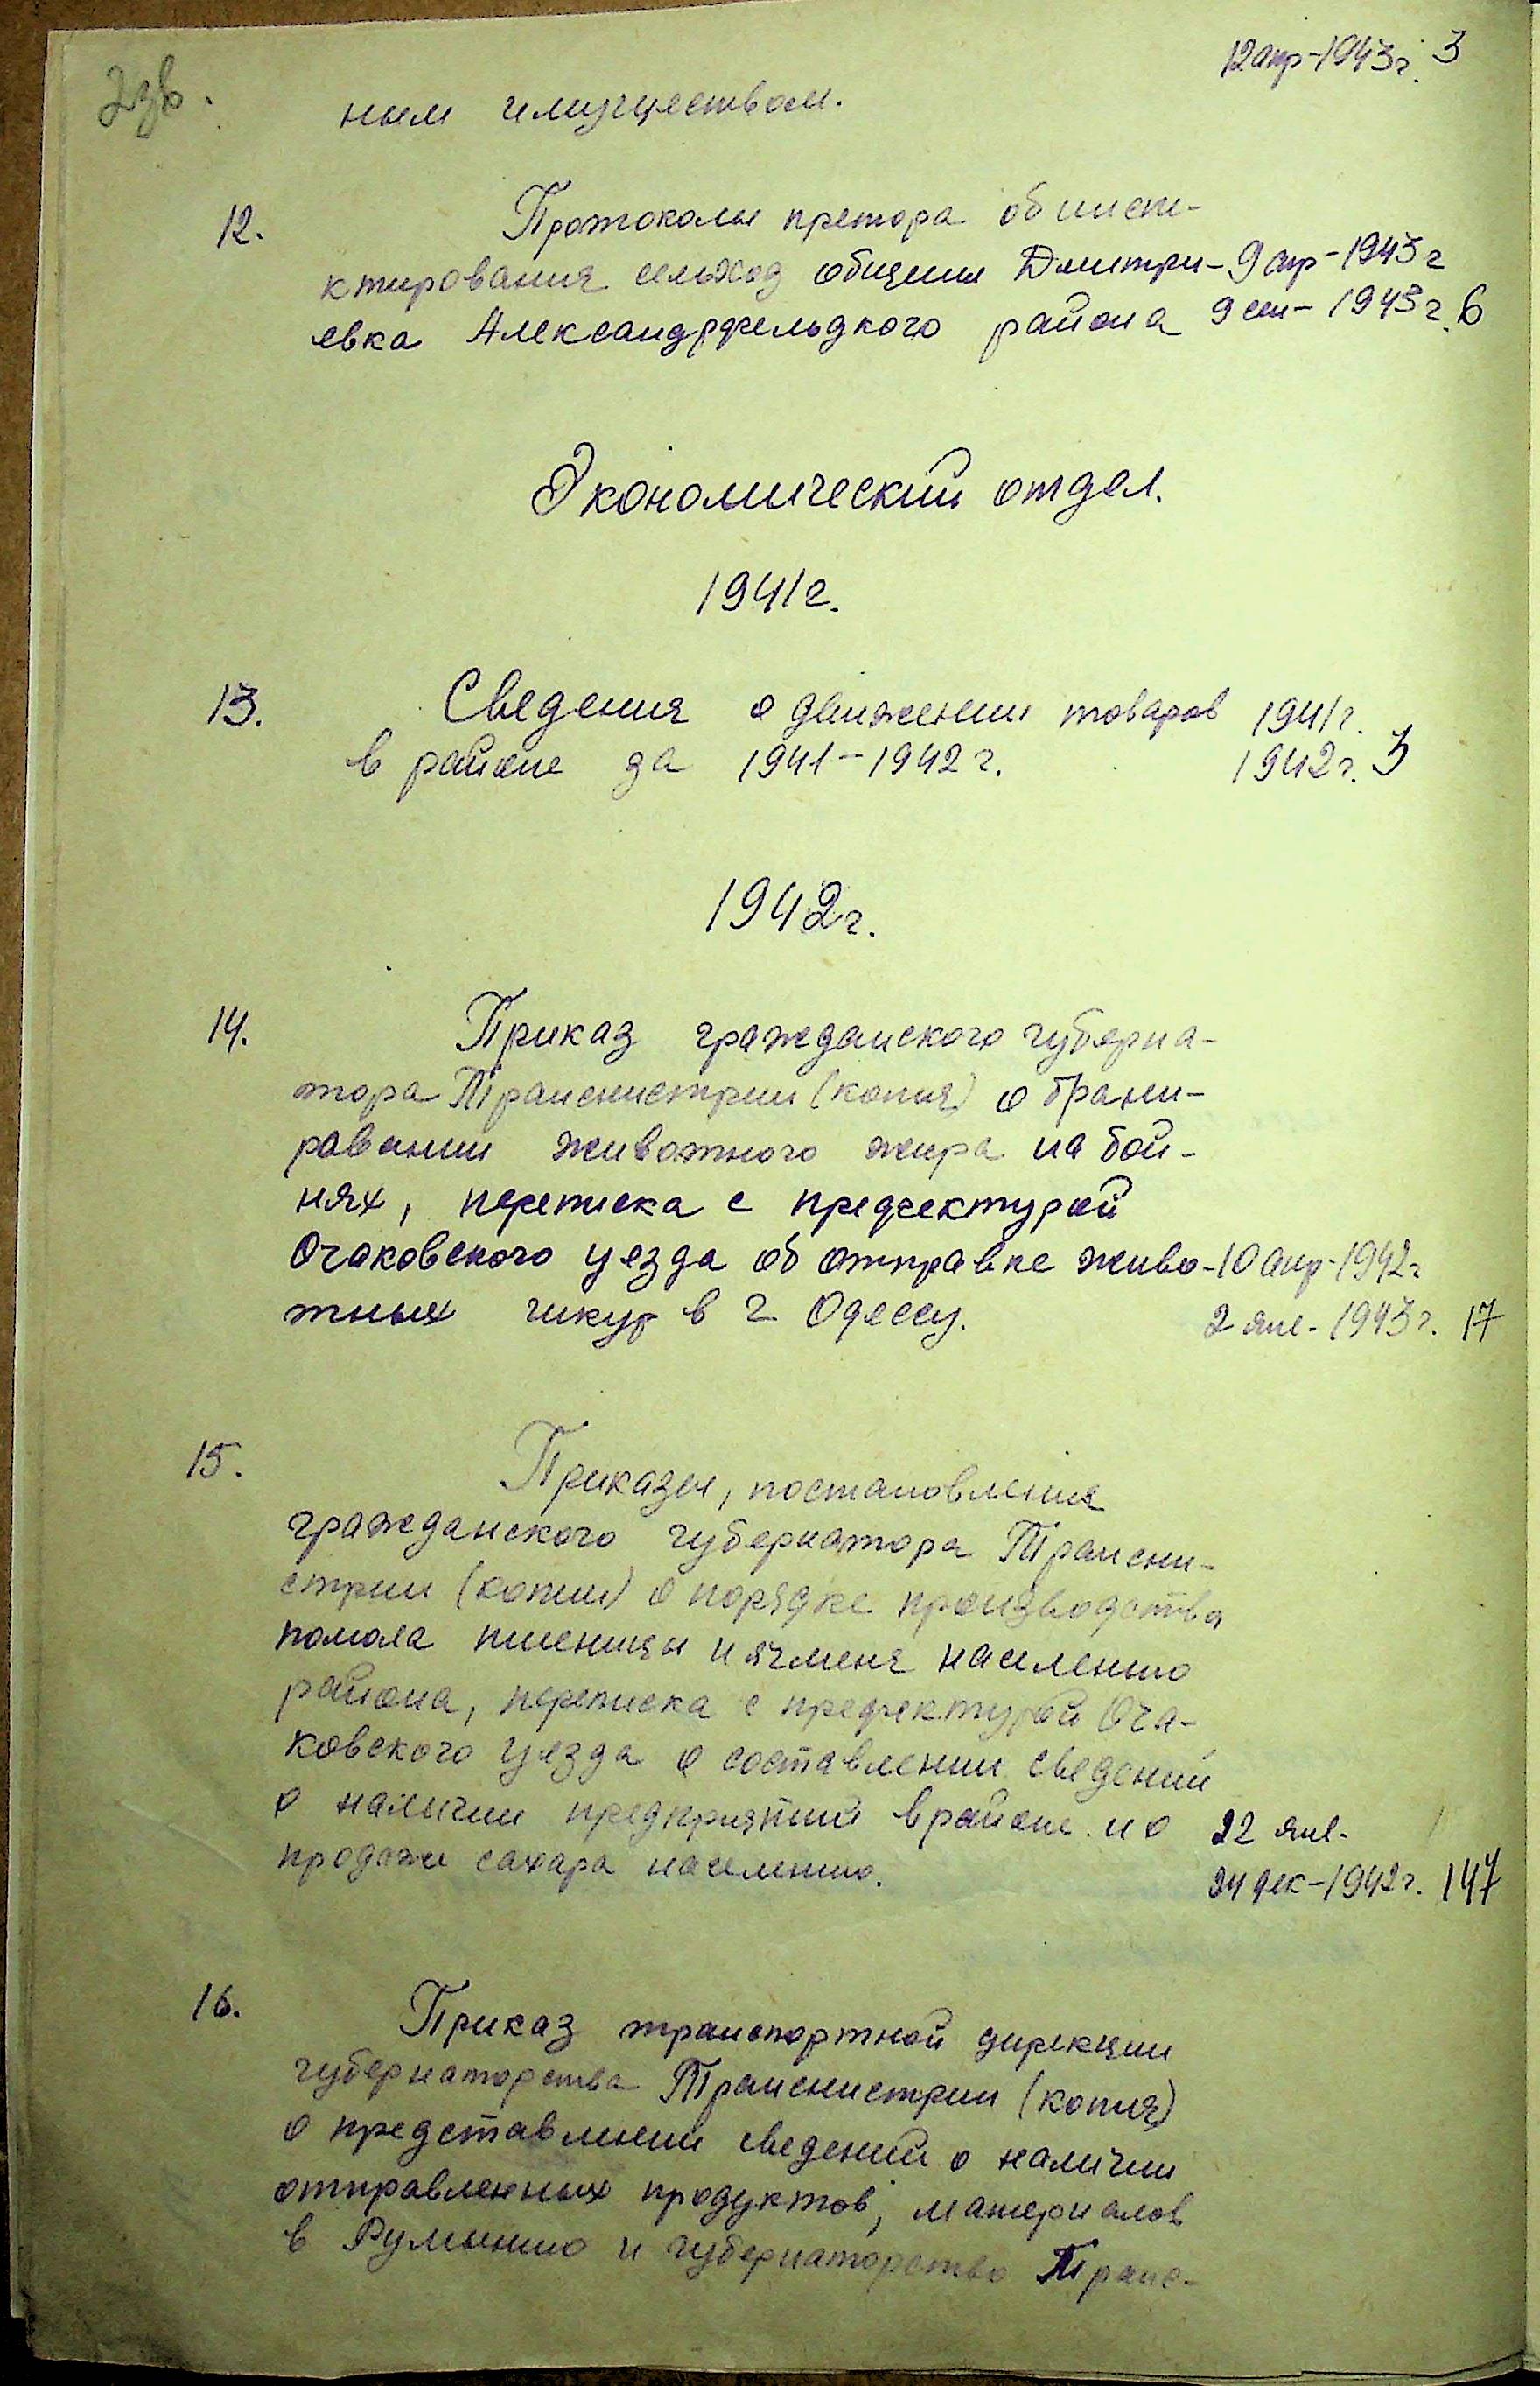 12 апр-1943г. 3
ным имуществом.
12. Протоколы претора об инспе-
ктирования сельхоз общины Дмитри- 9 апр-1943г
евка Александрфельдкого района 9 сен-1943г. 6
Экономический отдел.
1941г.
13. Сведения о движении товаров 1941г.
в районе за 1941-1942г. 1942г. 3
1942г.
14. Приказ гражданского губерна-
тора Транснистрии (копия) о брани-
равании животного жира на бой-
нях, переписка с префектурой
Очаковского уезда об отправке живо- 10 апр-1942г
тных шкур в г. Одессу. 2 янв-1943г. 17
15. Приказы, постановления
гражданского губернатора Трансни-
стрии (копии) о порядке производства
помола пшеницы и ячменя населению
района, переписка с префектурой Оча-
ковского уезда о составлении сведений
о наличии предприятий в районе и о 22 янв-
продаже сахара населению. 24 дек-1942г. 147
16. Приказ транспортной дирекции
губернаторства Транснистрии (копия)
о представлении сведений о наличии
отправленных продуктов, материалов
в Румынию и губернаторство Транс-